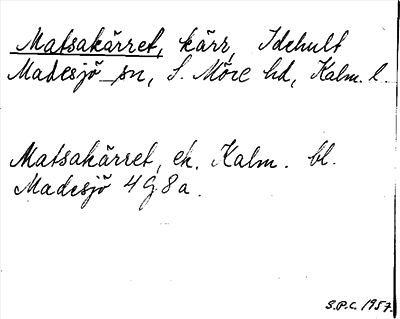 Matsakärret, kärr, Idehult
Madesjö sn, S. Möre hd, Kalm. l.
Matsakärret, ek. Kalm. bl.
Madesjö 4G8a.
S.P.C. 1957.